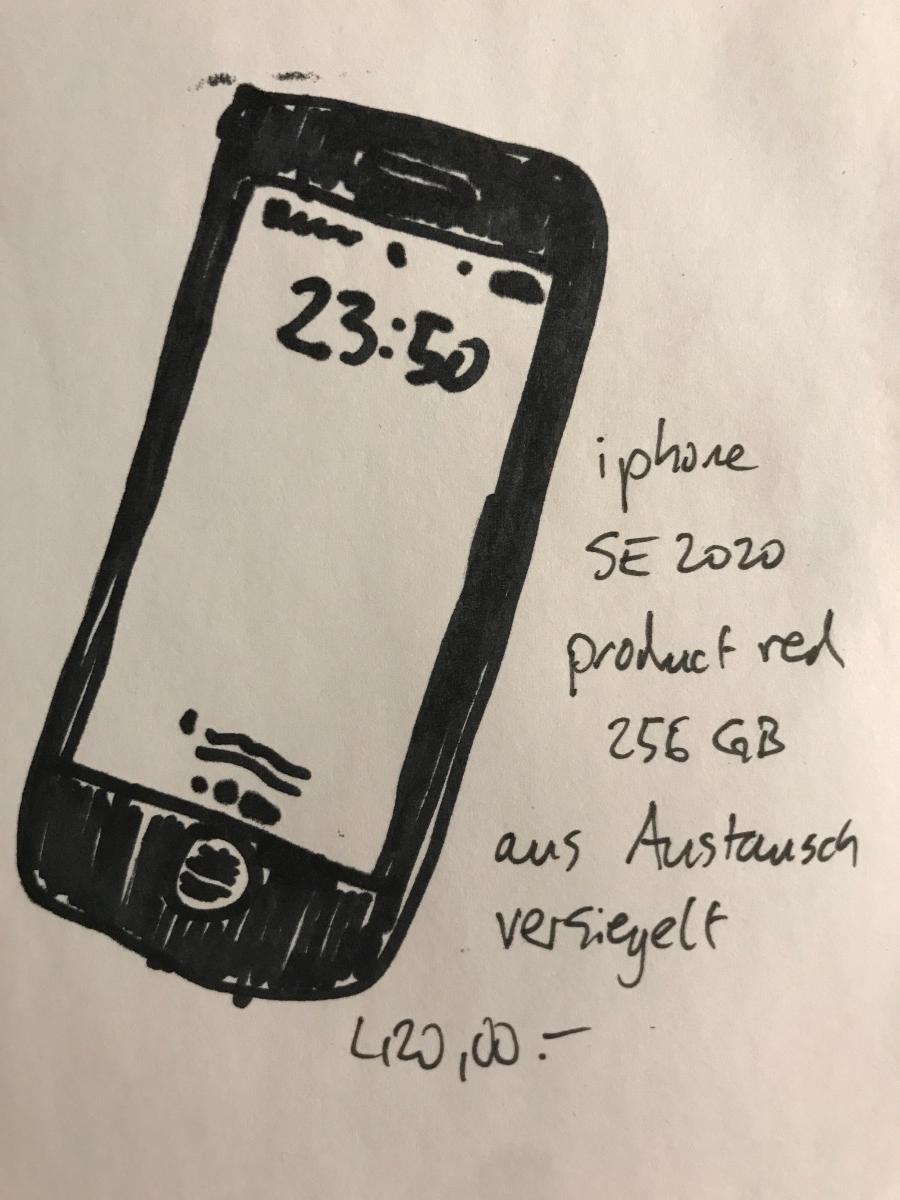 23:50
iphone
SE 2020
product red
256 GB
aus Austausch
versiegelt
420,00.-